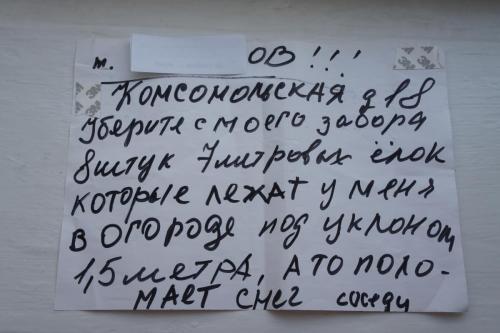 т. ОВ!!!
КОМСОМОМСКАЯ д 18
Уберите с моего забора
8штук 7митровых ёлок
которые лежат у меня
в огороде под уклоном
1,5 метра, а то поло-
мает снег соседи